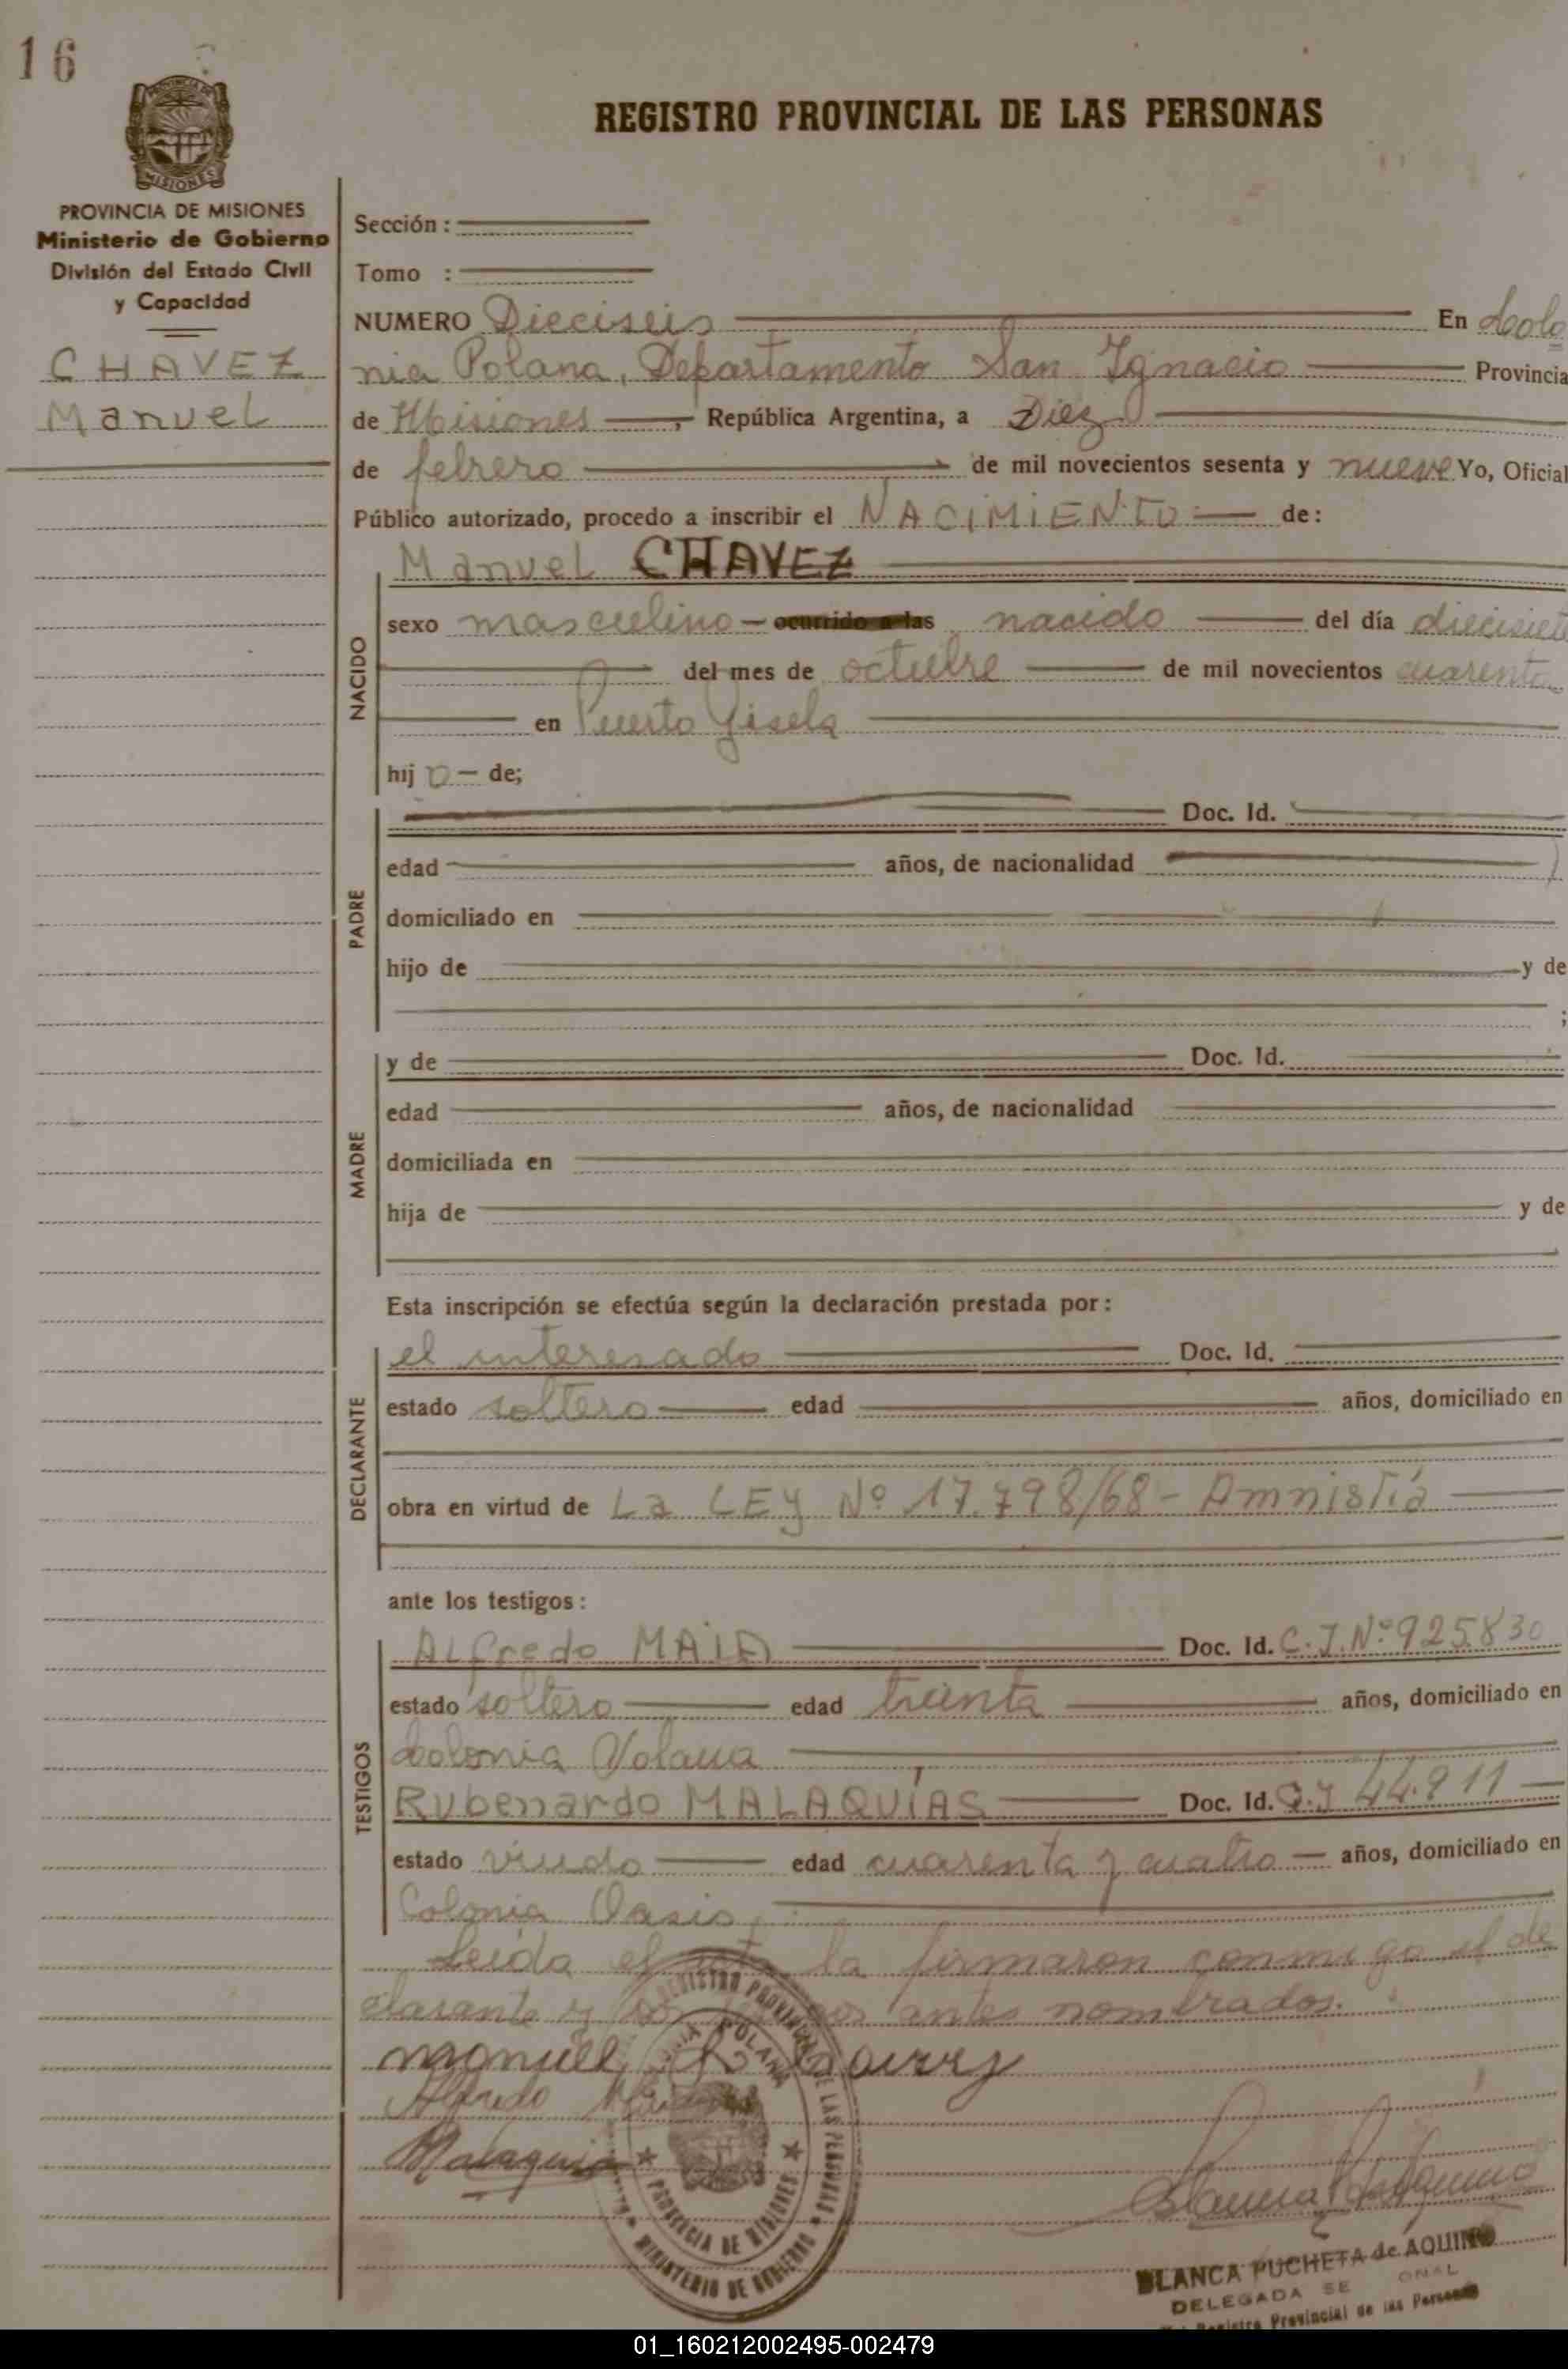 16
REGISTRO PROVINCIAL DE LAS PERSONAS
MISIONES
PROVINCIA DE MISIONES
Ministerio de Gobierno
División del Estado Civil
y Capacidad
CHAVEZ
Manuel
Sección :
Tomo :
NUMERO Dieciseis En Colo
nia Polana, Departamento San Ignacio Provincia
de Misiones, República Argentina, a Diez
de febrero de mil novecientos sesenta y nueve Yo, Oficial
Público autorizado, procedo a inscribir el NACIMIENTO de:
Manuel CHAVEZ
NACIDO
sexo masculino - ocurrido a las nacido del día diecisiete
del mes de octubre de mil novecientos cuarenta
en Puerto Gisela
hij o - de;
PADRE
Doc. Id.
edad años, de nacionalidad
domiciliado en
hijo de y de
;
MADRE
y de Doc. Id.
edad años, de nacionalidad
domiciliada en
hija de y de
Esta inscripción se efectúa según la declaración prestada por:
DECLARANTE
el interesado Doc. Id.
estado soltero edad años, domiciliado en
obra en virtud de La LEY Nº 17.798/68 - Amnistía
ante los testigos:
TESTIGOS
Alfredo MAIA Doc. Id. C.I.Nº 925830
estado soltero edad treinta años, domiciliado en
Colonia Polana
Rubenardo MALAQUÍAS Doc. Id. C.I 44.911
estado viudo edad cuarenta y cuatro - años, domiciliado en
Colonia Oasis,
Leida el acta la firmaron conmigo el de
clarante y los testigos antes nombrados.
manuel
Alfredo
Malaquias
REGISTRO PROVINCIAL DE LAS PERSONAS
COLONIA POLANA
PROVINCIA DE MISIONES
MINISTERIO DE GOBIERNO
BLANCA PUCHETA de AQUINO
DELEGADA SE ONAL
Registro Provincial de las Personas
01_160212002495-002479